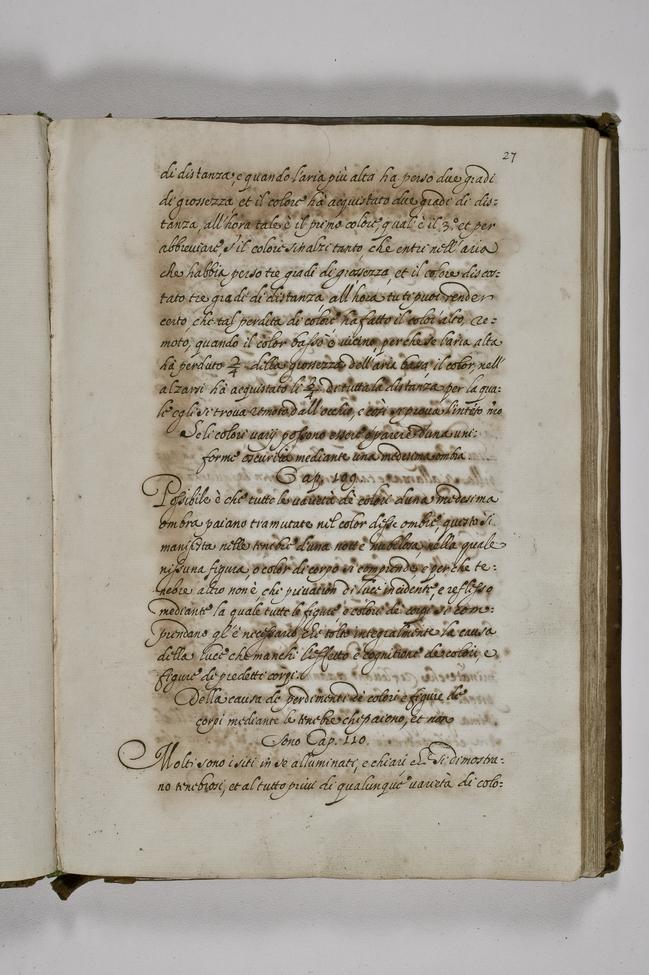 27
di distanza, e quando l'aria più alta ha perso due gradi
di grossezza et il colore ha acquistato due gradi di dis:
tanza, all'hora tale è il primo colore, qual è il 3.º et per
abbreviare, s'il colore s'inalzi tanto, che entri nell'aria
che habbia perso tre gradi di grossezza, et il colore discos:
tato tre gradi di distanza all'hora tu ti puoi render
certo, che tal perdita di colore ha fatto il color alto, re:
moto, quando il color basso è vicino, perche se l'aria alta
hà perduto 2/4 della grossezza dell'aria bassa il color, nell'
alzarsi hà acquistato li 2/4 di tutta la distanza per la qua:
le egli si trova remoto dall'occhio, e così si prova l'intēto nro
Se li colori varij possono essere o parere d'una uni:
forme oscurità mediante una medesima ombra.
Cap. 109.
Possibile è che tutte le varietà de colori d'una medesima
ombra paiano tramutate nel color d'esse ombre, questo si
manifesta nelle tenebre d'una notte nubilosa nella quale
nissuna figura, o color di corpo si comprende e perche te:
nebre altro non è che privation di luce incidente, e reflesso
mediante la quale tutte le figure e colori de corpi si com:
prendano gl'è necessario che tolto integralmente la causa
della luce che manchi l'effetto e cognitione de colori, e
figure de predetti corpi.
Della causa de perdimenti de colori e figure de
corpi mediante le tenebre che paiono, et non
sono Cap. 110.
Molti sono i siti in se alluminati, e chiari che si dimostra:
no tenebrosi, et al tutto privi di qualunque varietà di colo: